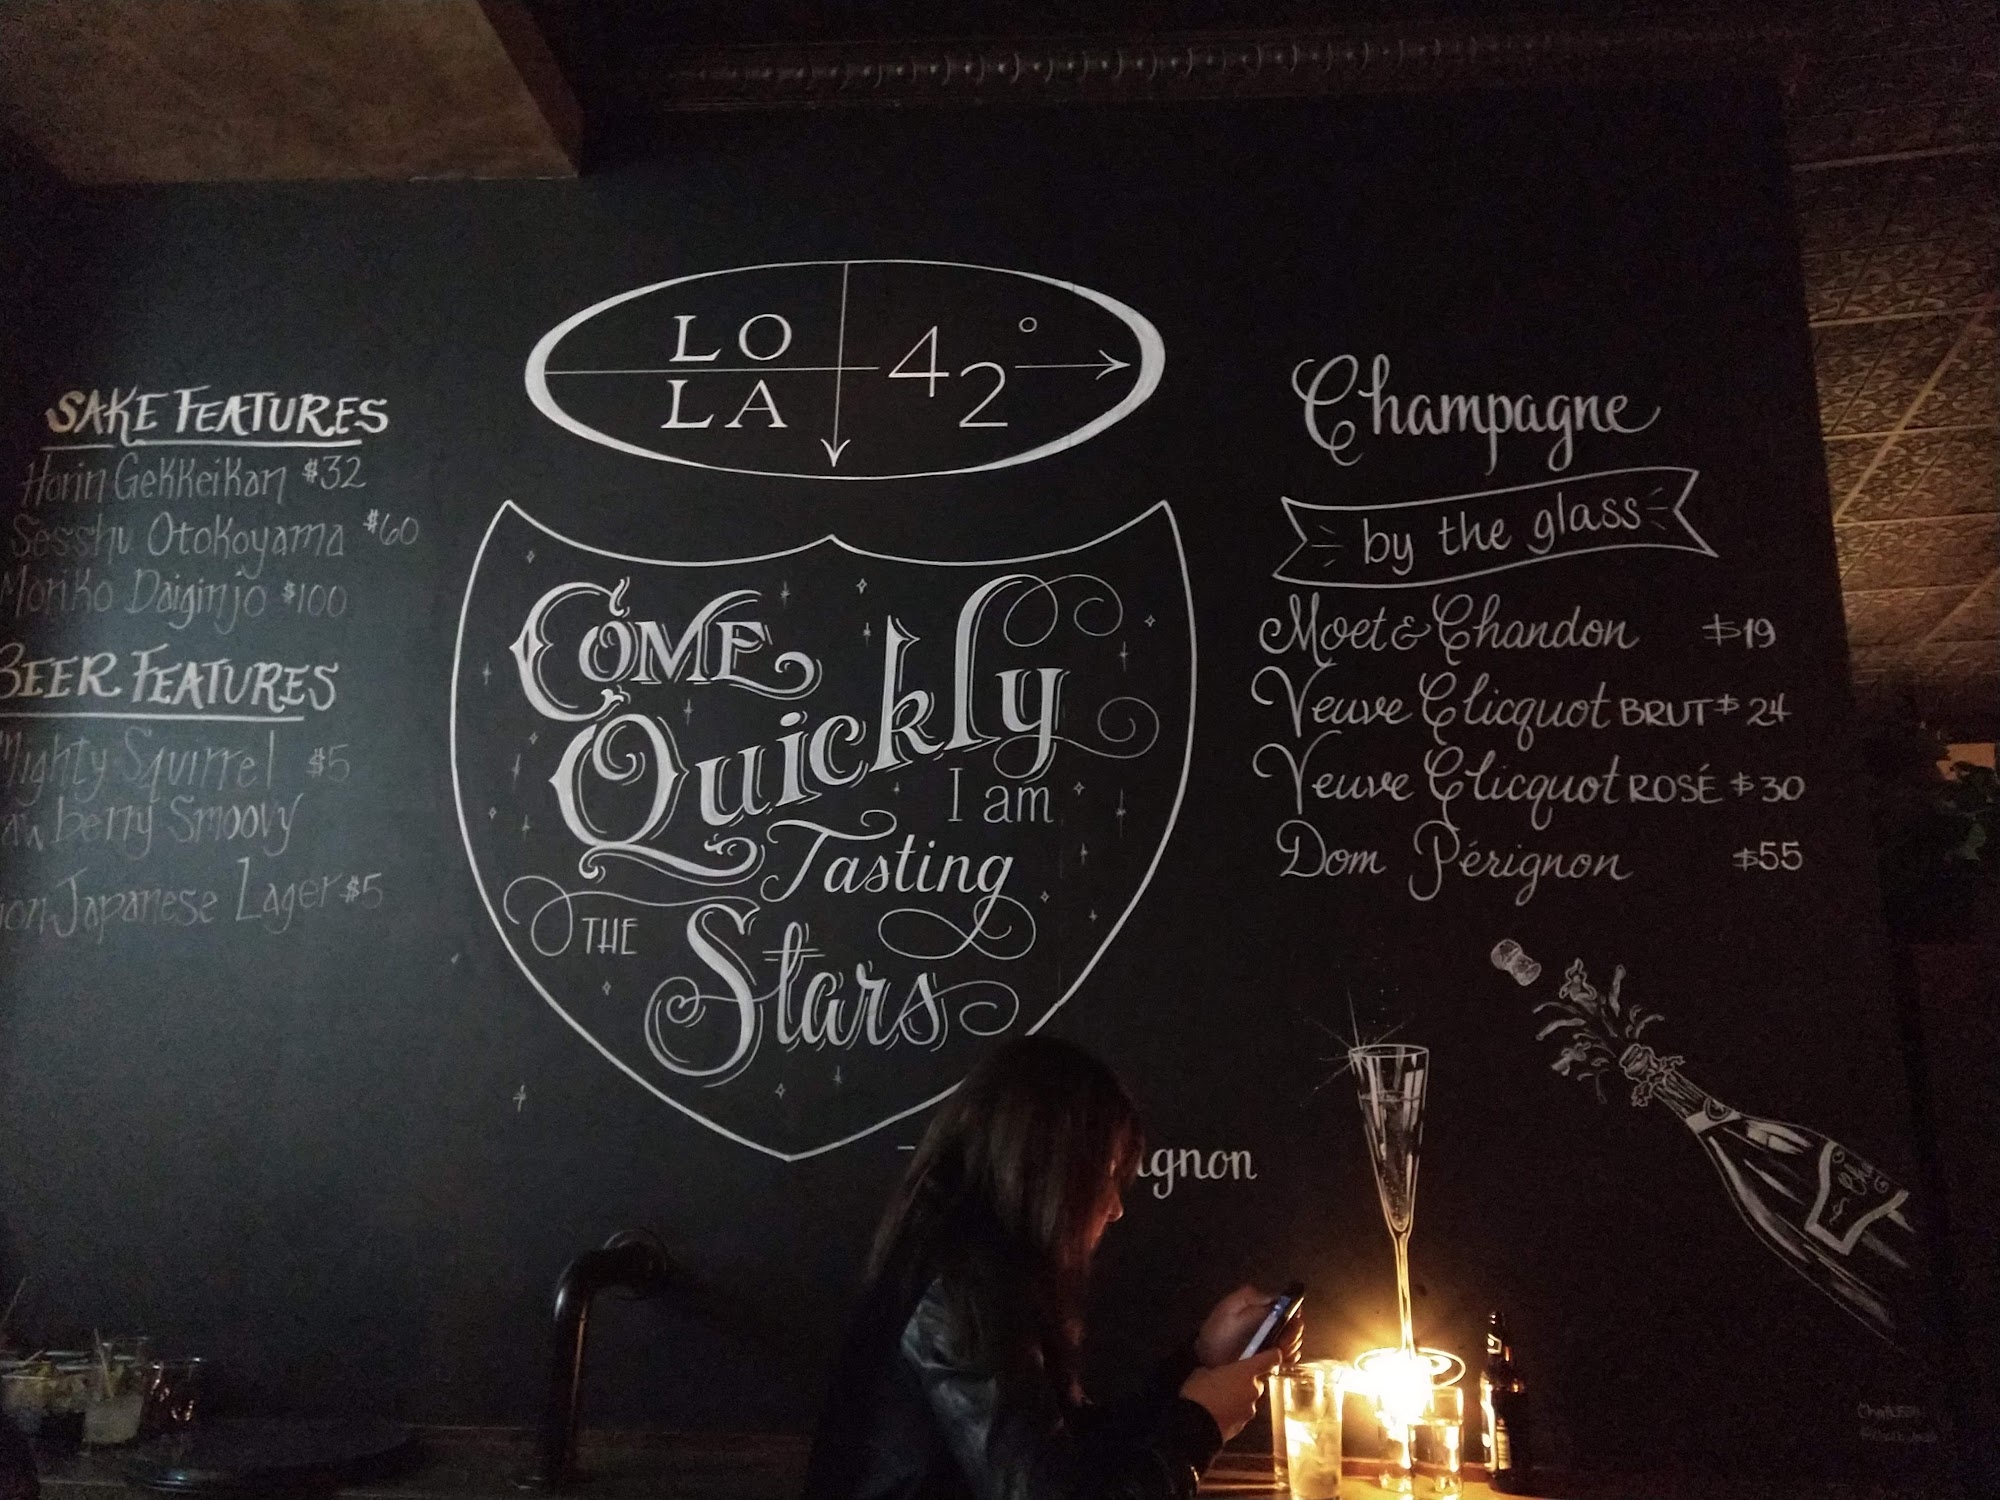 LO
LA
42°
SAKE FEATURES
Horin Gekkeikan $32
Sesshu Otokoyama $60
Moriko Daiginjo $100
BEER FEATURES
Mighty Squirrel $5
berry Smoovy
Japanese Lager $5
COME
Quickly
I am
Tasting
THE
Stars
ignon
Champagne
by the glass
Moet & Chandon $19
Veuve Clicquot BRUT $24
Veuve Clicquot ROSÉ $30
Dom Pérignon $55